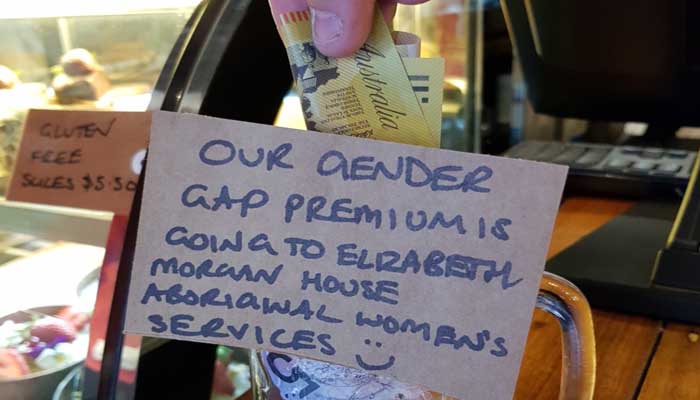 Australia
GLUTEN
FREE
SLICES $5.50
OUR GENDER
GAP PREMIUM IS
GOING TO ELIZABETH
MORGAN HOUSE
ABORIGINAL WOMEN'S
SERVICES :)